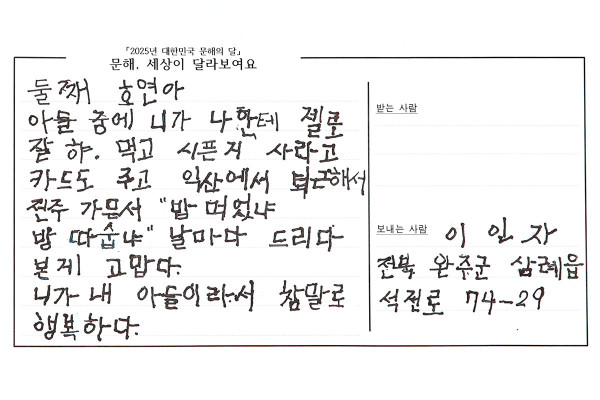 『2025년 대한민국 문해의 달』
문해, 세상이 달라보여요
둘째 호연아
아들 중에 니가 나한테 젤로
잘 햐. 먹고 시픈거 사라고
카드도 주고 익산에서 퇴근해서
전주 가믄서 "밥 머겄냐
방 따숩냐" 날마다 드리다
본게 고맙다.
니가 내 아들이라서 참말로
행복하다.
받는 사람
보내는 사람 이 인 자
전북 완주군 삼례읍
석전로 74-29